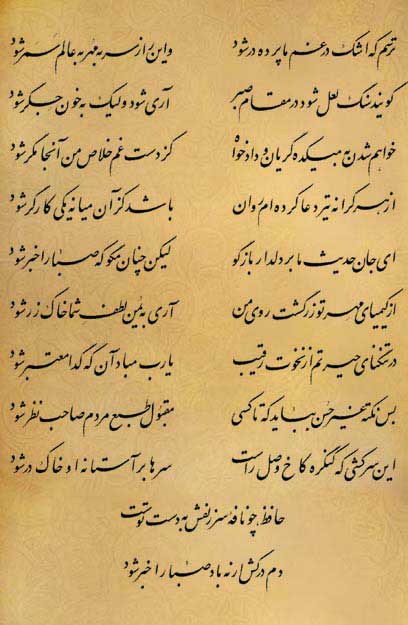 ترسم که اشک در غم ما پرده در شود واین راز سر به مهر به عالم سمر شود
گویند سنگ لعل شود در مقام صبر آری شود ولیک به خون جگر شود
خواهم شدن به میکده گریان و دادخواه کز دست غم خلاص من آنجا مگر شود
از هر کرانه تیر دعا کرده ام روان باشد کز آن میانه یکی کارگر شود
ای جان حدیث ما بر دلدار بازگو لیکن چنان مگو که صبا را خبر شود
از کیمیای مهر تو زر گشت روی من آری به یمن لطف شما خاک زر شود
در تنگنای حیرتم از نخوت رقیب یارب مباد آن که گدا معتبر شود
بس نکته غیر حسن بباید که تا کسی مقبول طبع مردم صاحب نظر شود
این سرکشی که کنگره کاخ وصل راست سرها بر آستانه او خاک در شود
حافظ چو نافه سر زلفش به دست توست
دم درکش ار نه باد صبا را خبر شود